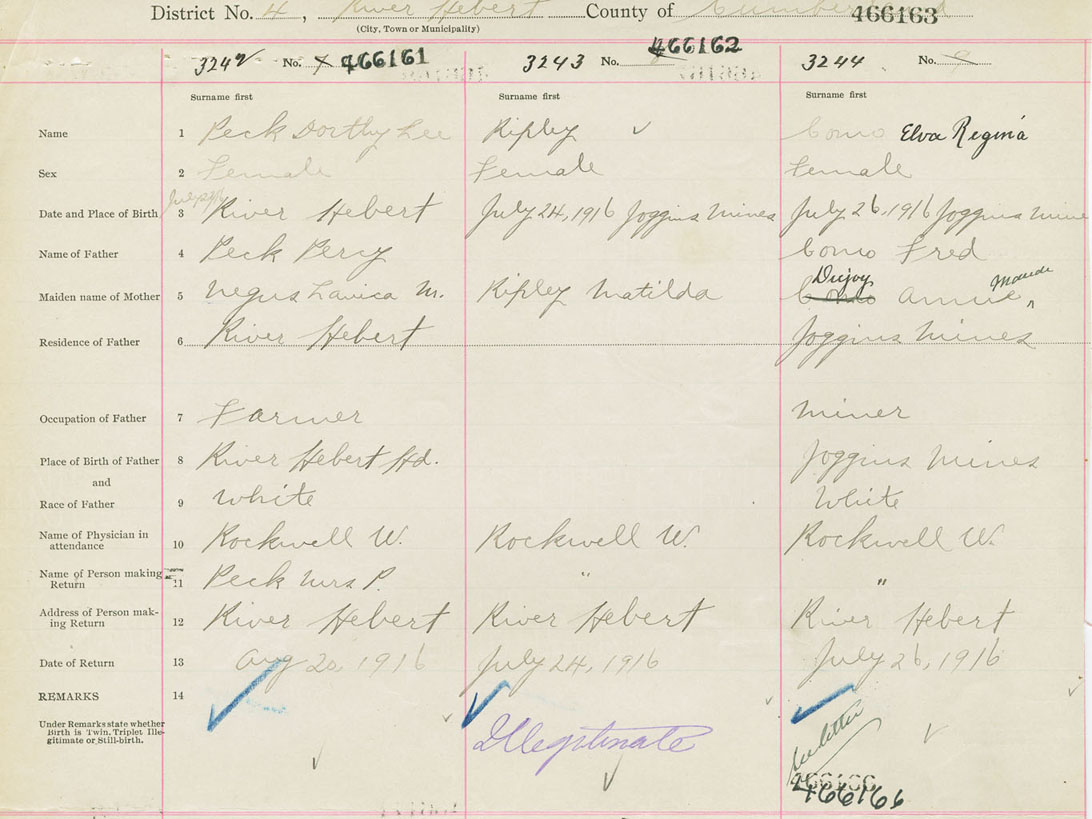 District No. 4, River Hebert County of 466163
(City, Town or Municipality)
3242 No. 466161 3243 No. 466162 3244 No. 9
Surname first Surname first Surname first
Name 1 Peck Dorthy Lee Ripley Como Elva Regina
Sex 2 Female Female Female
Date and Place of Birth 3 River Hebert July 24, 1916 Joggins Mines July 26, 1916 Joggins Mine
Name of Father 4 Peck Percy Como Fred
Maiden name of Mother 5 Negus M. Ripley Matilda Como Annie Maude
Residence of Father 6 River Hebert Joggins Mines
Occupation of Father 7 Farmer Miner
Place of Birth of Father 8 River Hebert Hd. Joggins Mines
and
Race of Father 9 White White
Name of Physician in attendance 10 Rockwell W. Rockwell W. Rockwell W.
Name of Person making Return 11 Peck Mrs P. " "
Address of Person mak-
ing Return 12 River Hebert River Hebert River Hebert
Date of Return 13 Aug 20, 1916 July 24, 1916 July 26, 1916
REMARKS 14
Under Remarks state whether
Birth is Twin, Triplet Ille-
gitimate or Still-birth.
Illegitimate
see letter
466166
466166